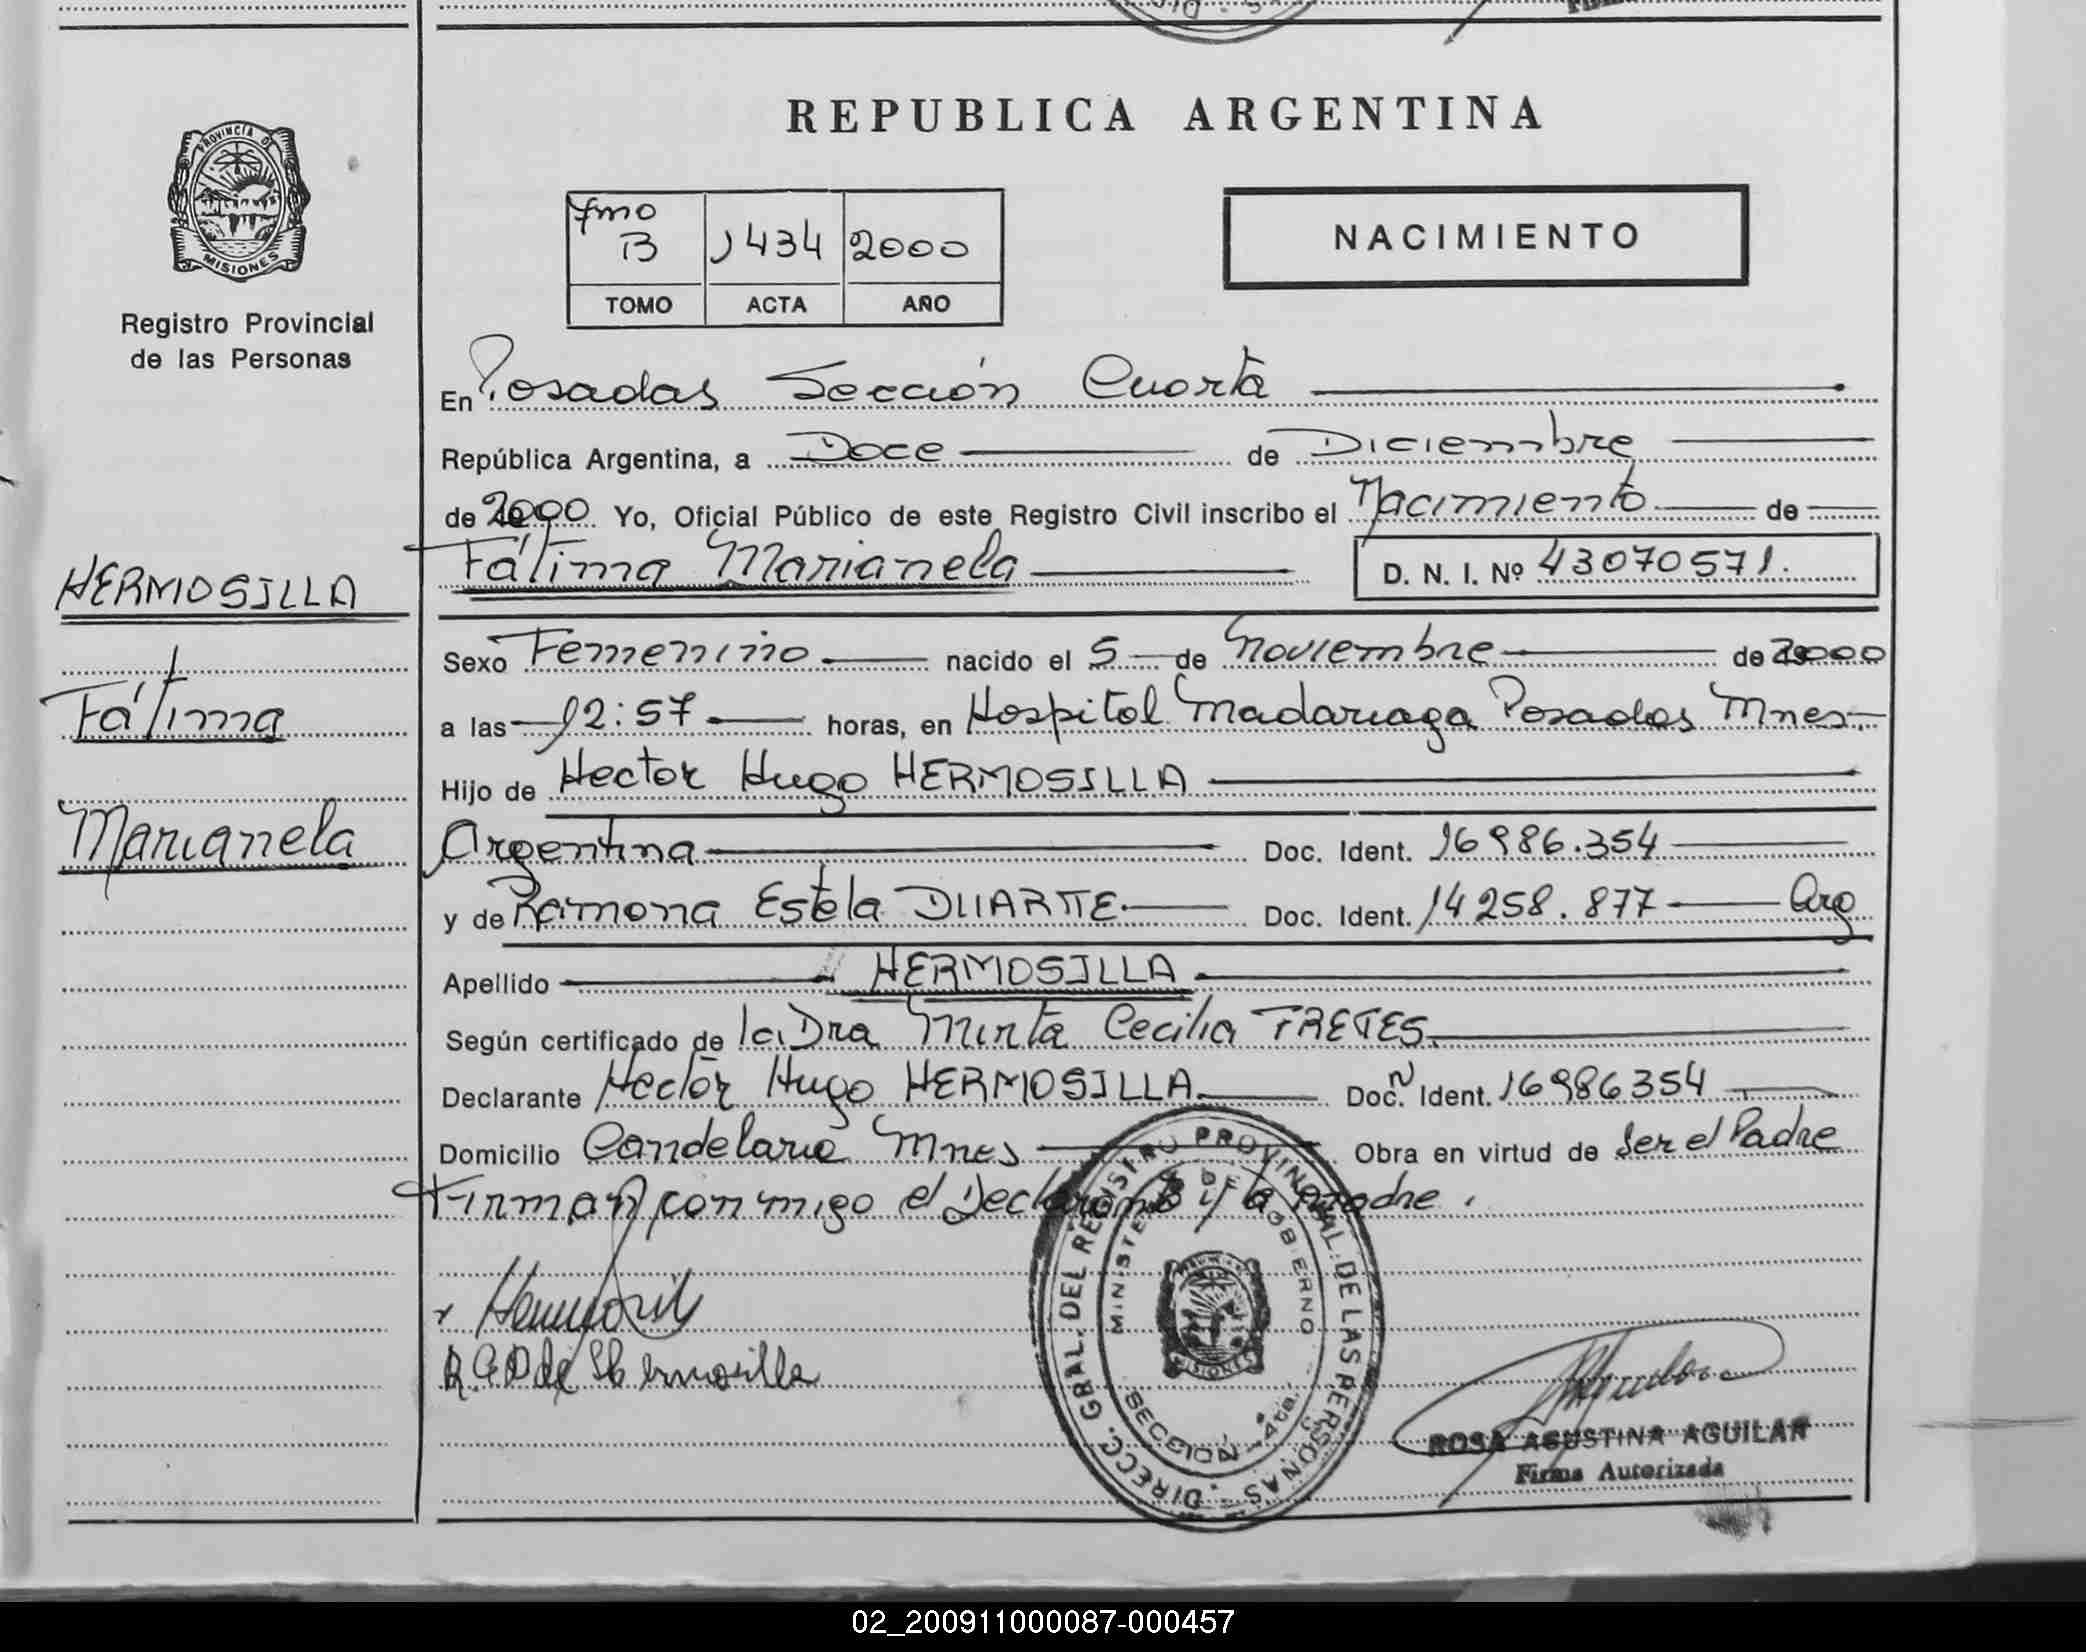 REPUBLICA ARGENTINA
PROVINCIA DE
MISIONES
Registro Provincial
de las Personas
7mo
B 1434 2000
TOMO ACTA AÑO
NACIMIENTO
En Posadas Sección Cuarta
República Argentina, a Doce de Diciembre
de 2000 Yo, Oficial Público de este Registro Civil inscribo el Nacimiento de
Fátima Marianela D. N. I. Nº 43070571.
HERMOSILLA
Fátima
Marianela
Sexo Femenino nacido el 5 de Noviembre de 2000
a las 12:57 horas, en Hospital Madariaga Posadas Mnes
Hijo de Hector Hugo HERMOSILLA
Argentina Doc. Ident. 16986.354
y de Ramona Estela DUARTE Doc. Ident. 14258.877 Arg
Apellido HERMOSILLA
Según certificado de la Dra Mirta Cecilia FRETES
Declarante Hector Hugo HERMOSILLA Doc. Ident. 16986354
Domicilio Candelaria Mnes Obra en virtud de Ser el Padre
Firman conmigo el Declarante y la madre.
R.E.D de Hermosilla
DIRECC. GRAL. DEL REGISTRO PROVINCIAL DE LAS PERSONAS
MINISTERIO DE GOBIERNO
MISIONES
SECCION 4ta.
ROSA AGUSTINA AGUILAR
Firma Autorizada
02_200911000087-000457